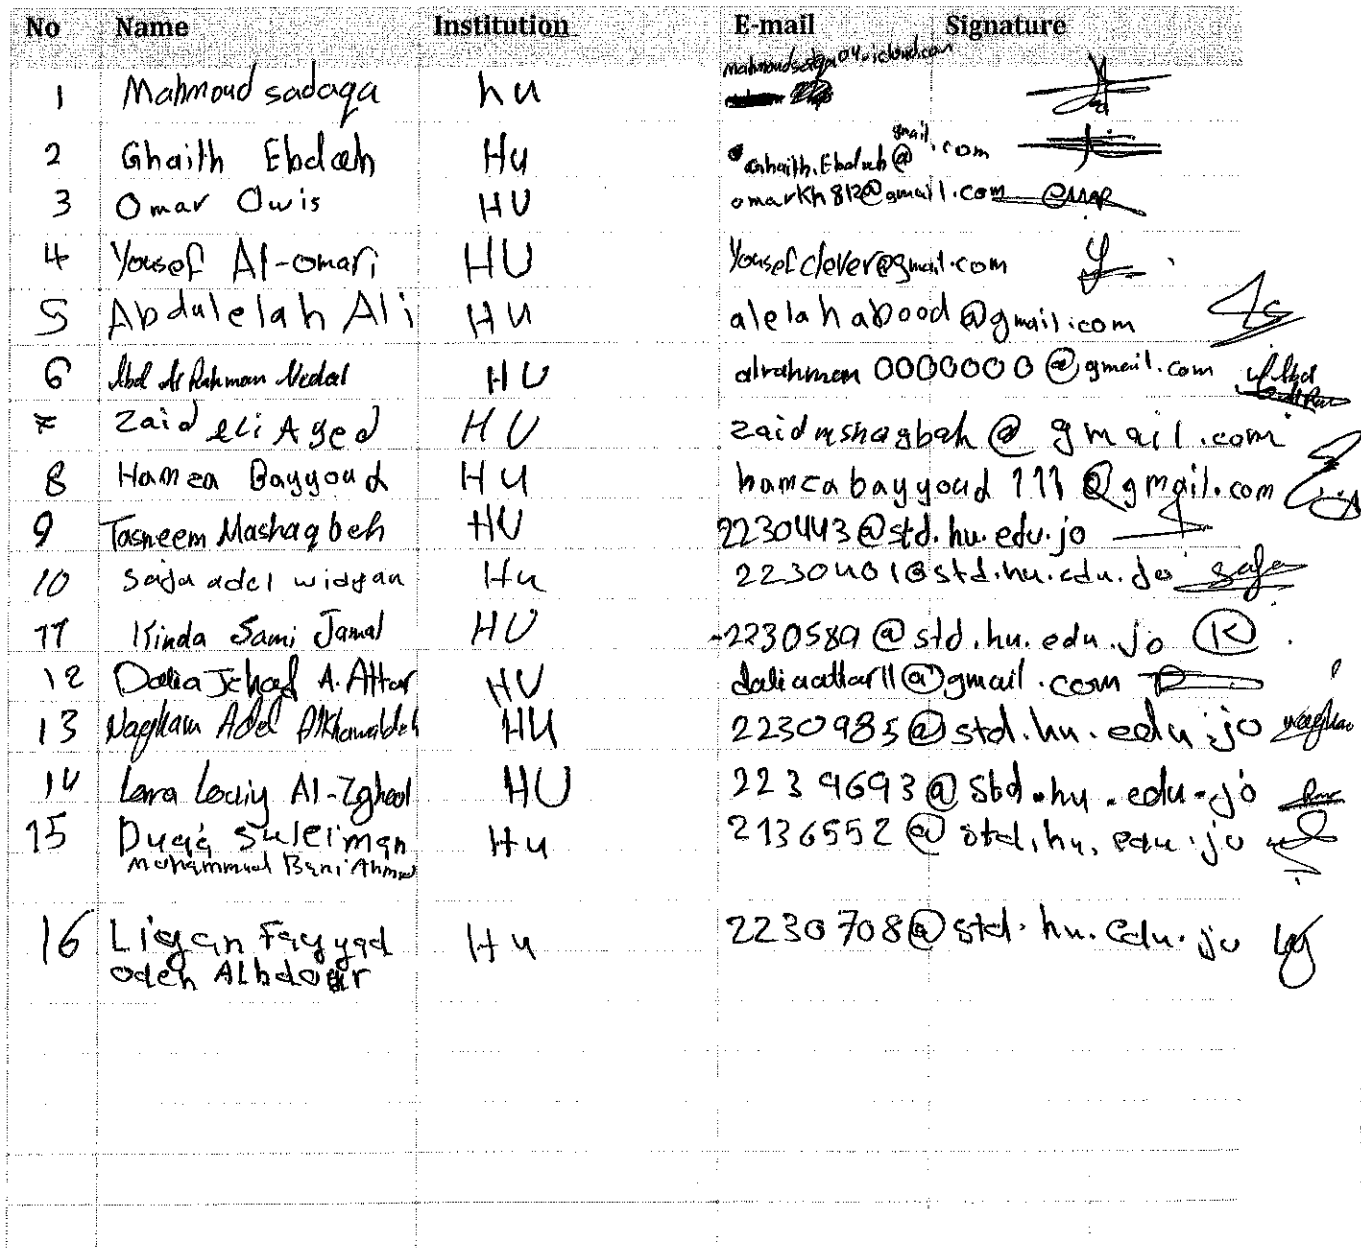 No Name Institution E-mail Signature
1 Mahmoud sadaqa hu
2 Ghaith Ebdah Hu Ghaith.Ebdah@gmail.com
3 Omar Owis HU omarkh812@gmail.com
4 Yousef Al-omari HU Yousefclever@gmail.com
5 Abdulelah Ali HU alelahabood@gmail.com
6 Abd Al Rahman Nedal HU alrahman0000000@gmail.com
7 Zaid Ali Aged HU zaidmshagbah@gmail.com
8 Hamza Bayyoud HU hamzabayyoud111@gmail.com
9 Tasneem Mashaqbeh HU 2230443@std.hu.edu.jo
10 Saja adel widyan Hu 2230401@std.hu.edu.jo
11 Kinda Sami Jamal HU 2230589@std.hu.edu.jo
12 Dalia Jehad A. Attar HU daliaattar11@gmail.com
13 Nagham Adel HU 2230985@std.hu.edu.jo
14 Lara Loaiy Al-Zghool HU 2239693@std.hu.edu.jo
15 Duaá Suleiman Hu 2136552@std.hu.edu.jo
Mohammad Bani Ahmad
16 Ligan Fayyad Hu 2230708@std.hu.edu.jo
odeh Albdour